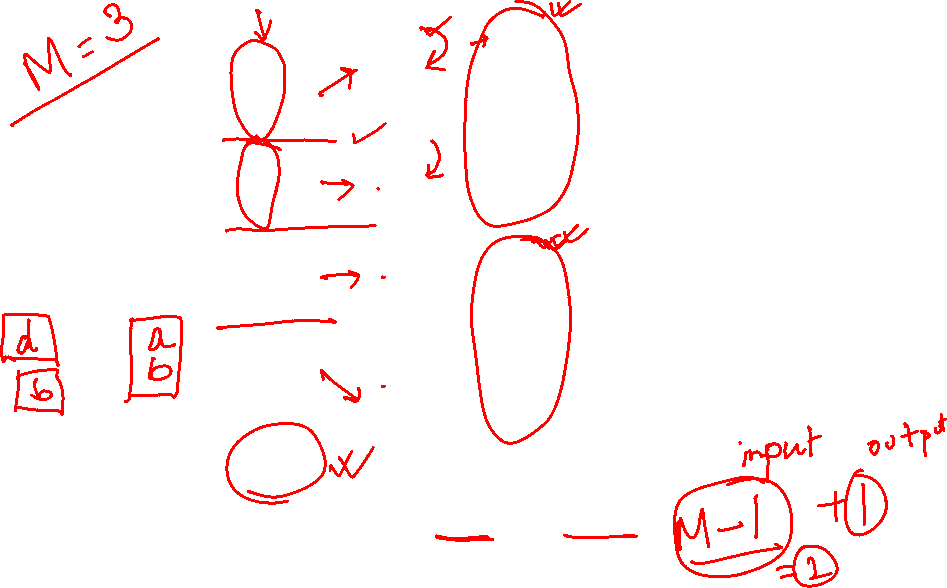 M = 3
d
b
a
b
input output
M-1 + 1
= 2